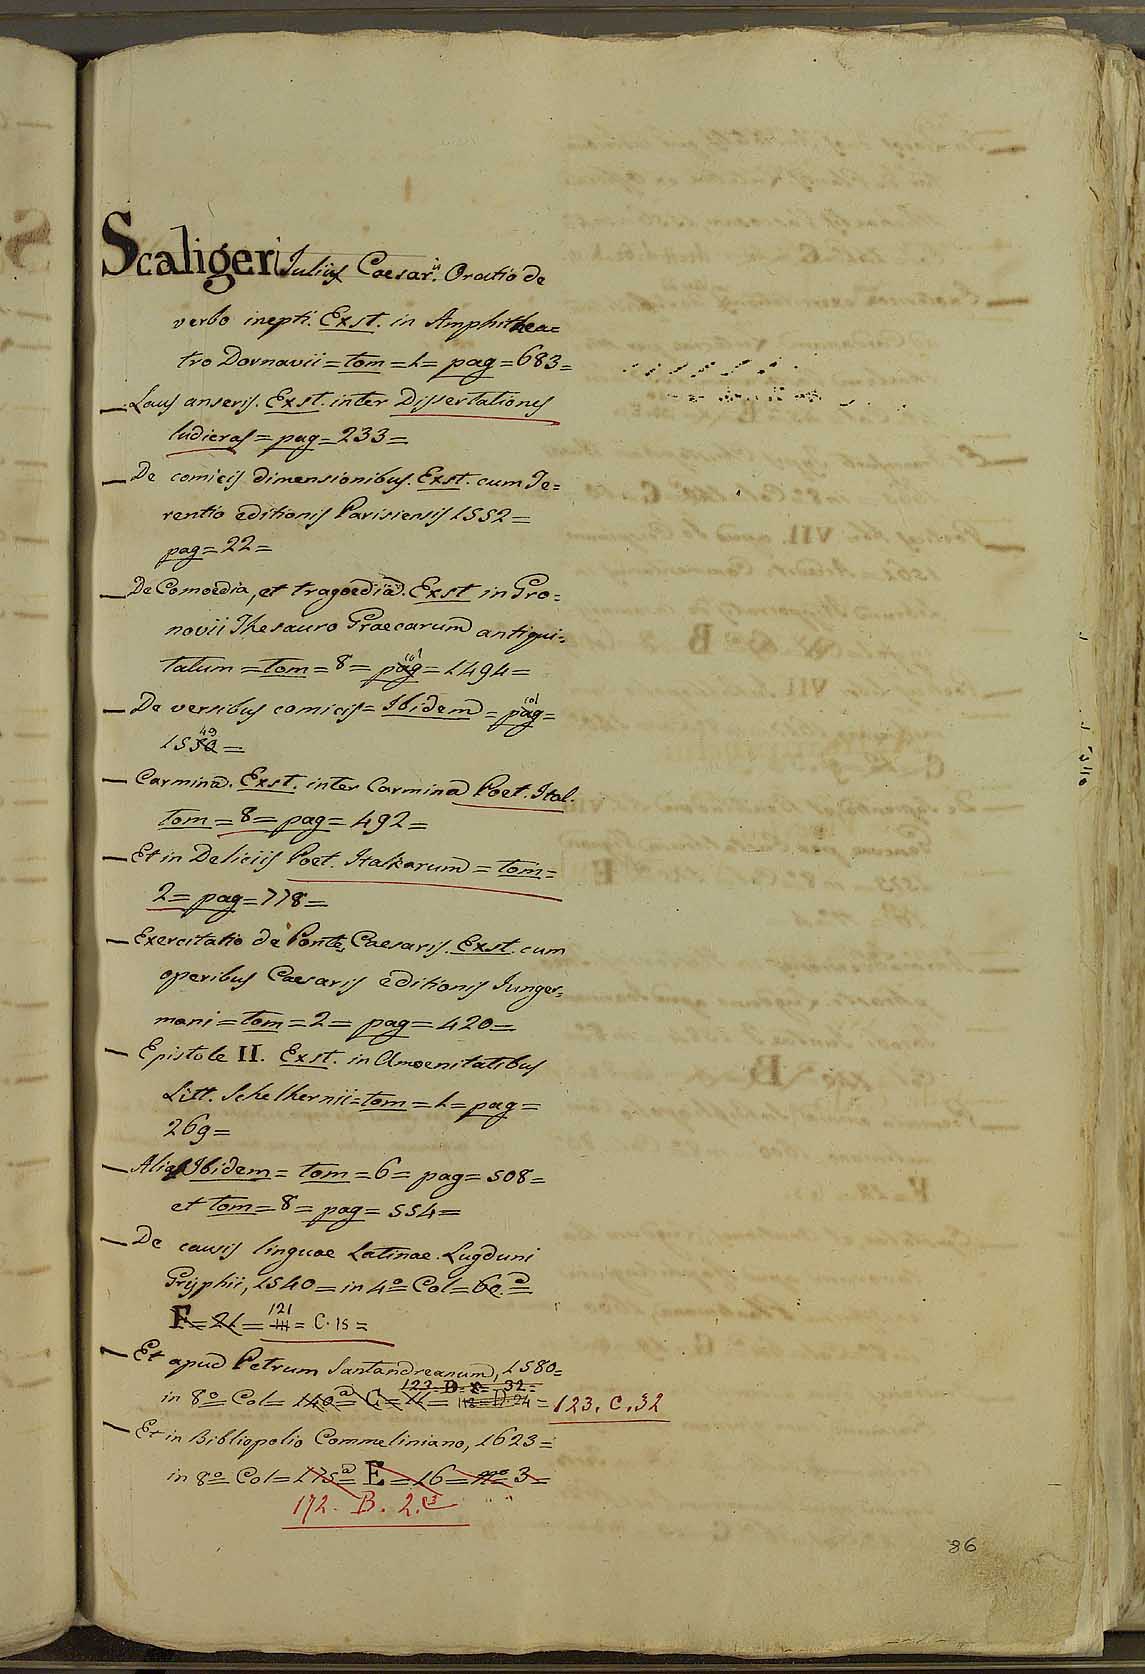 Scaligeri Julii Caesaris. Oratio de
verbo inepti. Exst. in Amphithea=
tro Dornavii = tom = 1 = pag = 683 =
— Laus anseris. Exst. inter Dissertationes
ludicras = pag = 233 =
— De comicis dimensionibus. Exst. cum Te=
rentio editionis Parisiensis 1552 =
pag = 22 =
— De Comoedia, et tragoedia. Exst in Gro=
novii Thesauro Graecarum antiqui=
tatum = tom = 8 = pag col = 1494 =
— De versibus comicis = Ibidem = pag col =
1552 49 =
— Carmina. Exst. inter Carmina Poet. Ital.
tom = 8 = pag = 492 =
— Et in Deliciis Poet. Italicarum = tom =
2 = pag = 778 =
— Exercitatio de Ponte Caesaris. Exst. cum
operibus Caesaris editionis Junger=
mani = tom = 2 = pag = 420 =
— Epistole II. Exst. in Amoenitatibus
Litt. Schelhernii = tom = 1 = pag =
269 =
— Alia Ibidem = tom = 6 = pag = 508 =
et tom = 8 = pag = 554 =
— De causis linguae Latinae. Lugduni
Gryphii, 1540 = in 4º Col = 6e. a
F = 21 = 111 121 = C. 15 =
— Et apud Petrum Santandreanum, 1580 =
122 = D = x = 32 =
in 8º Col = 140 a = C = 11 = 112 = D 24 = 123. C. 32
— Et in Bibliopolio Commeliniano, 1623 =
in 8º Col = 175 a = E = 16 = nº 3 =
172. B. 2.
86